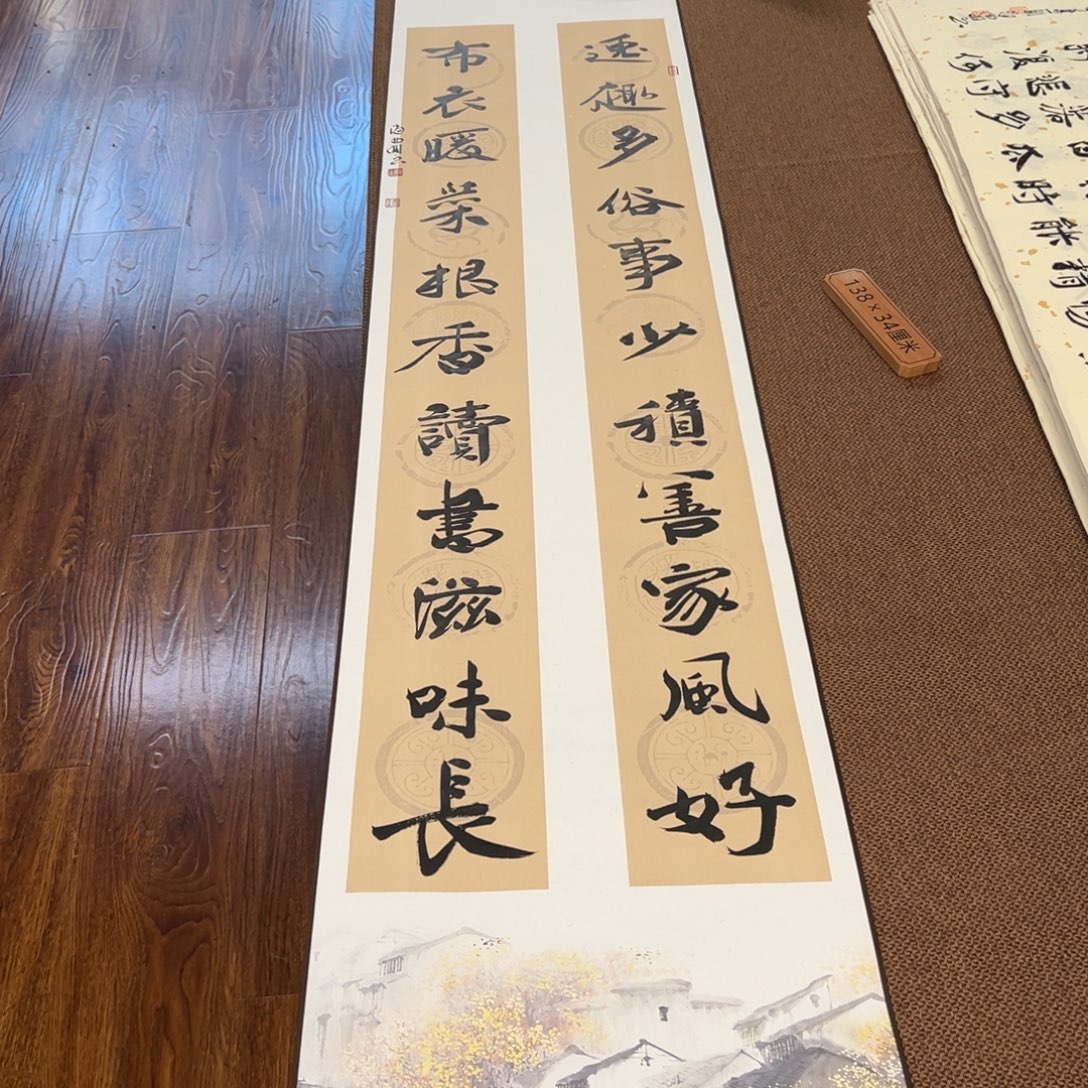 逸趣多俗事少積善家風好
布衣暖菜根香讀書滋味長
138×34厘米